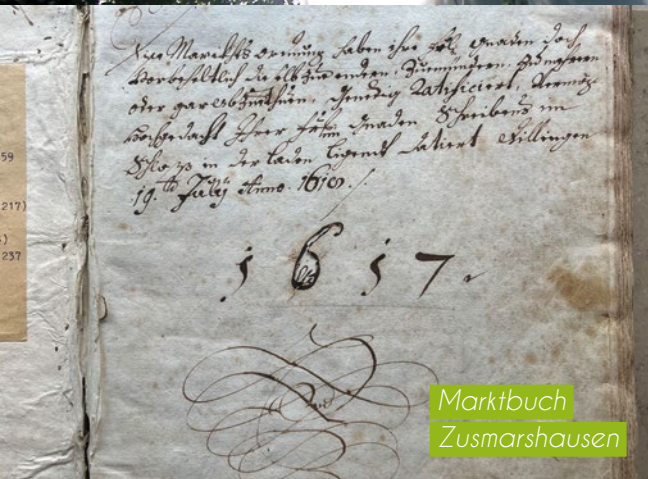 59
217)
)
237
Dise Marckhts ordnung haben ihre Frl: gnaden doch
Vorbeheltlich die selb Zue endern, Zuemündern, Zuemehren
oder gar abZuethuen, Genedig Ratificiert, Vermög
Hochgedacht Ihrer Gnaden Schreibens im
in der laden ligendt datiert Dillingen
19. July Anno. 1618.
1617.
Marktbuch
Zusmarshausen